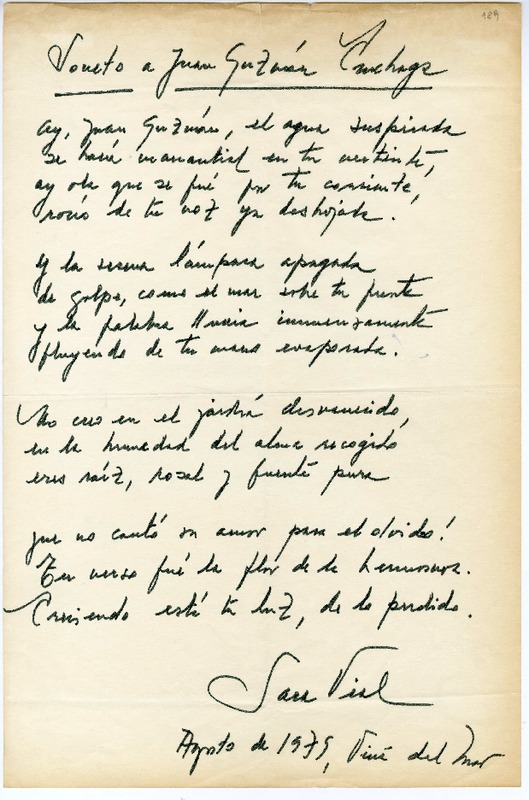 189
Soneto a Juan Guzmán Cruchaga
Ay, Juan Guzmán, el agua suspirada
se hará manantial en tu vertiente,
ay ola que se fué por tu corriente,
rocío de tu voz ya deshojada.
Y la serena lámpara apagada
de golpe, como el mar sobre tu frente
y la palabra lluvia inmensamente
fluyendo de tu mano evaporada.
No creo en el jardín desvanecido,
en la humedad del alma recogido
eres raíz, rosal y fuente pura
que no cantó su amor para el olvido!
Tu verso fué la flor de la hermosura.
Creciendo está tu luz, de lo perdido.
Sara Vial
Agosto de 1979, Viña del Mar